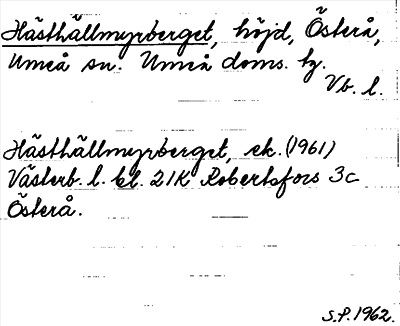 Hästhällmyrberget, höjd, Österå,
Umeå sn. Umeå doms. hg.
Vb. l.
Hästhällmyrberget, ek. (1961)
Västerb. l. bl. 21K Robertsfors 3c
Österå.
S.P. 1962.